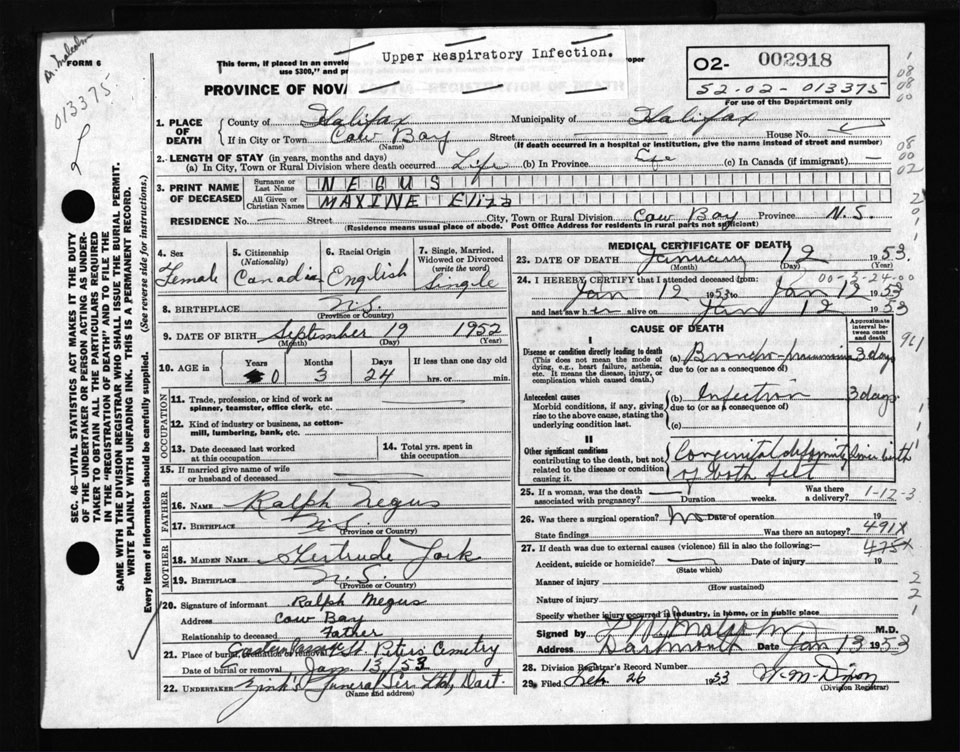 Dr. Malcolm
FORM 6
013375
Upper Respiratory Infection.
This form, if placed in an envelo
oper
use $300," and p
PROVINCE OF NOVA
REGISTRATION OF DEATH
O2- 002918
52-02-013375
For use of the Department only
1. PLACE OF DEATH
County of Halifax Municipality of Halifax
If in City or Town Cow Bay Street House No.
(Name) (If death occurred in a hospital or institution, give the name instead of street and number)
2. LENGTH OF STAY (in years, months and days)
(a) In City, Town or Rural Division where death occurred Life (b) In Province Life (c) In Canada (if immigrant) —
3. PRINT NAME OF DECEASED
Surname or Last Name NEGUS
All Given or Christian Names MAXINE Eliza
RESIDENCE No. — Street City, Town or Rural Division Cow Bay Province N.S.
(Residence means usual place of abode. Post Office Address for residents in rural parts not sufficient)
4. Sex Female
5. Citizenship (Nationality) Canadian
6. Racial Origin English
7. Single, Married, Widowed or Divorced (write the word) Single
8. BIRTHPLACE N.S.
(Province or Country)
9. DATE OF BIRTH September 19 1952
(Month) (Day) (Year)
10. AGE in Years Months Days If less than one day old
0 3 24 hrs. or min.
OCCUPATION
11. Trade, profession, or kind of work as spinner, teamster, office clerk, etc.
12. Kind of industry or business, as cotton-mill, lumbering, bank, etc.
13. Date deceased last worked at this occupation
14. Total yrs. spent in this occupation
15. If married give name of wife or husband of deceased
FATHER
16. NAME Ralph Negus
17. BIRTHPLACE N.S.
(Province or Country)
MOTHER
18. MAIDEN NAME Gertrude York
19. BIRTHPLACE N.S.
(Province or Country)
20. Signature of informant Ralph Negus
Address Cow Bay
Relationship to deceased Father
21. Place of burial, cremation or removal Eastern Passage St. Peters Cemetry
Date of burial or removal Jan 13/53
22. UNDERTAKER Zink's Funeral Ser. Ltd, Dart.
(Name and address)
MEDICAL CERTIFICATE OF DEATH
23. DATE OF DEATH January 12 1953.
(Month) (Day) (Year)
00-3-24-00
24. I HEREBY CERTIFY that I attended deceased from:
Jan 12 1953 to Jan 12 1953
and last saw her alive on Jan 12 1953
CAUSE OF DEATH
Approximate interval between onset and death
I
Disease or condition directly leading to death
(This does not mean the mode of dying, e.g., heart failure, asthenia, etc. It means the disease, injury, or complication which caused death.)
(a) Broncho-pneumonia 3 days
due to (or as a consequence of)
Antecedent causes
Morbid conditions, if any, giving rise to the above cause, stating the underlying condition last.
(b) Infection 3 days
due to (or as a consequence of)
(c)
II
Other significant conditions
contributing to the death, but not related to the disease or condition causing it.
Congenital deformity of both feet since birth
25. If a woman, was the death associated with pregnancy? — Duration weeks. Was there a delivery?
1-12-3
26. Was there a surgical operation? No Date of operation 19
State findings Was there an autopsy?
491X
475X
27. If death was due to external causes (violence) fill in also the following:—
Accident, suicide or homicide? Date of injury 19
(State which)
Manner of injury
(How sustained)
Nature of injury
Specify whether injury occurred in industry, in home, or in public place
Signed by M.D.
Address Dartmouth Date Jan 13 1953
28. Division Registrar's Record Number
29. Filed Feb 26 1953 W. M. Dixon
(Division Registrar)
SEC. 46—VITAL STATISTICS ACT MAKES IT THE DUTY
OF THE UNDERTAKER OR PERSON ACTING AS UNDER-
TAKER TO OBTAIN ALL THE PARTICULARS REQUIRED
IN THE "REGISTRATION OF DEATH" AND TO FILE THE
SAME WITH THE DIVISION REGISTRAR WHO SHALL ISSUE THE BURIAL PERMIT.
WRITE PLAINLY WITH UNFADING INK. THIS IS A PERMANENT RECORD.
Every item of Information should be carefully supplied. (See reverse side for instructions.)